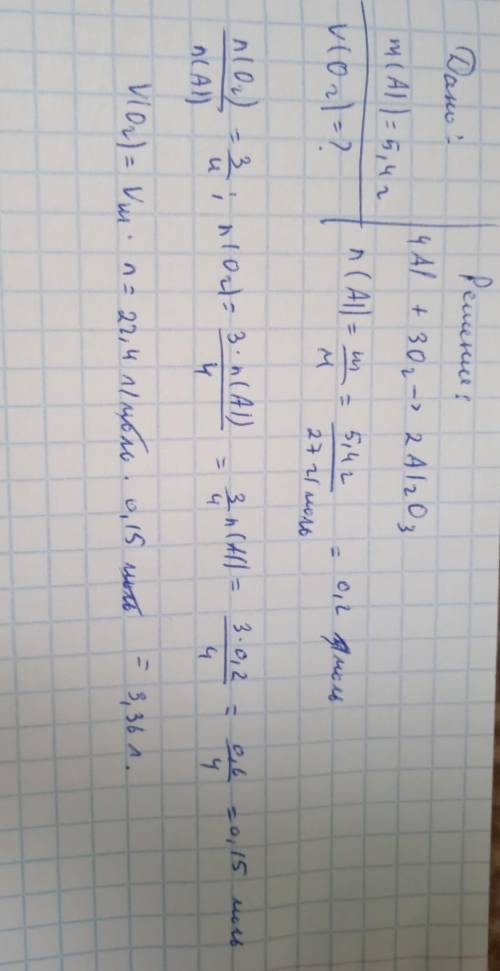 Дано: Решение:
m(Al) = 5,4 г 4Al + 3O2 → 2Al2O3
V(O2) = ? n(Al) = m/M = 5,4 г/27 г/моль = 0,2 моль
n(O2)/n(Al) = 3/4; n(O2) = 3·n(Al)/4 = 3/4 n(Al) = 3·0,2/4 = 0,6/4 = 0,15 моль
V(O2) = Vm · n = 22,4 л/моль · 0,15 моль = 3,36 л.